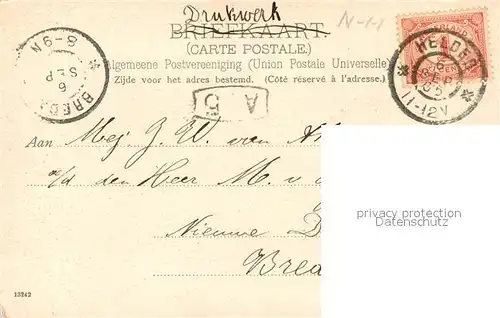 Drukwerk
N-1-1
BRIEFKAART
(CARTE POSTALE.)
Algemeene Postvereeniging (Union Postale Universelle)
Zijde voor het adres bestemd. (Côté réservé à l'adresse.)
BREDA
6 SEP
8-9N
HELDER
6 SEP 05
11-12V
A 5
Aan Mej. J. W. van
a/d den Heer M. v
Nieuwe
Bre
privacy protection
Datenschutz
13242